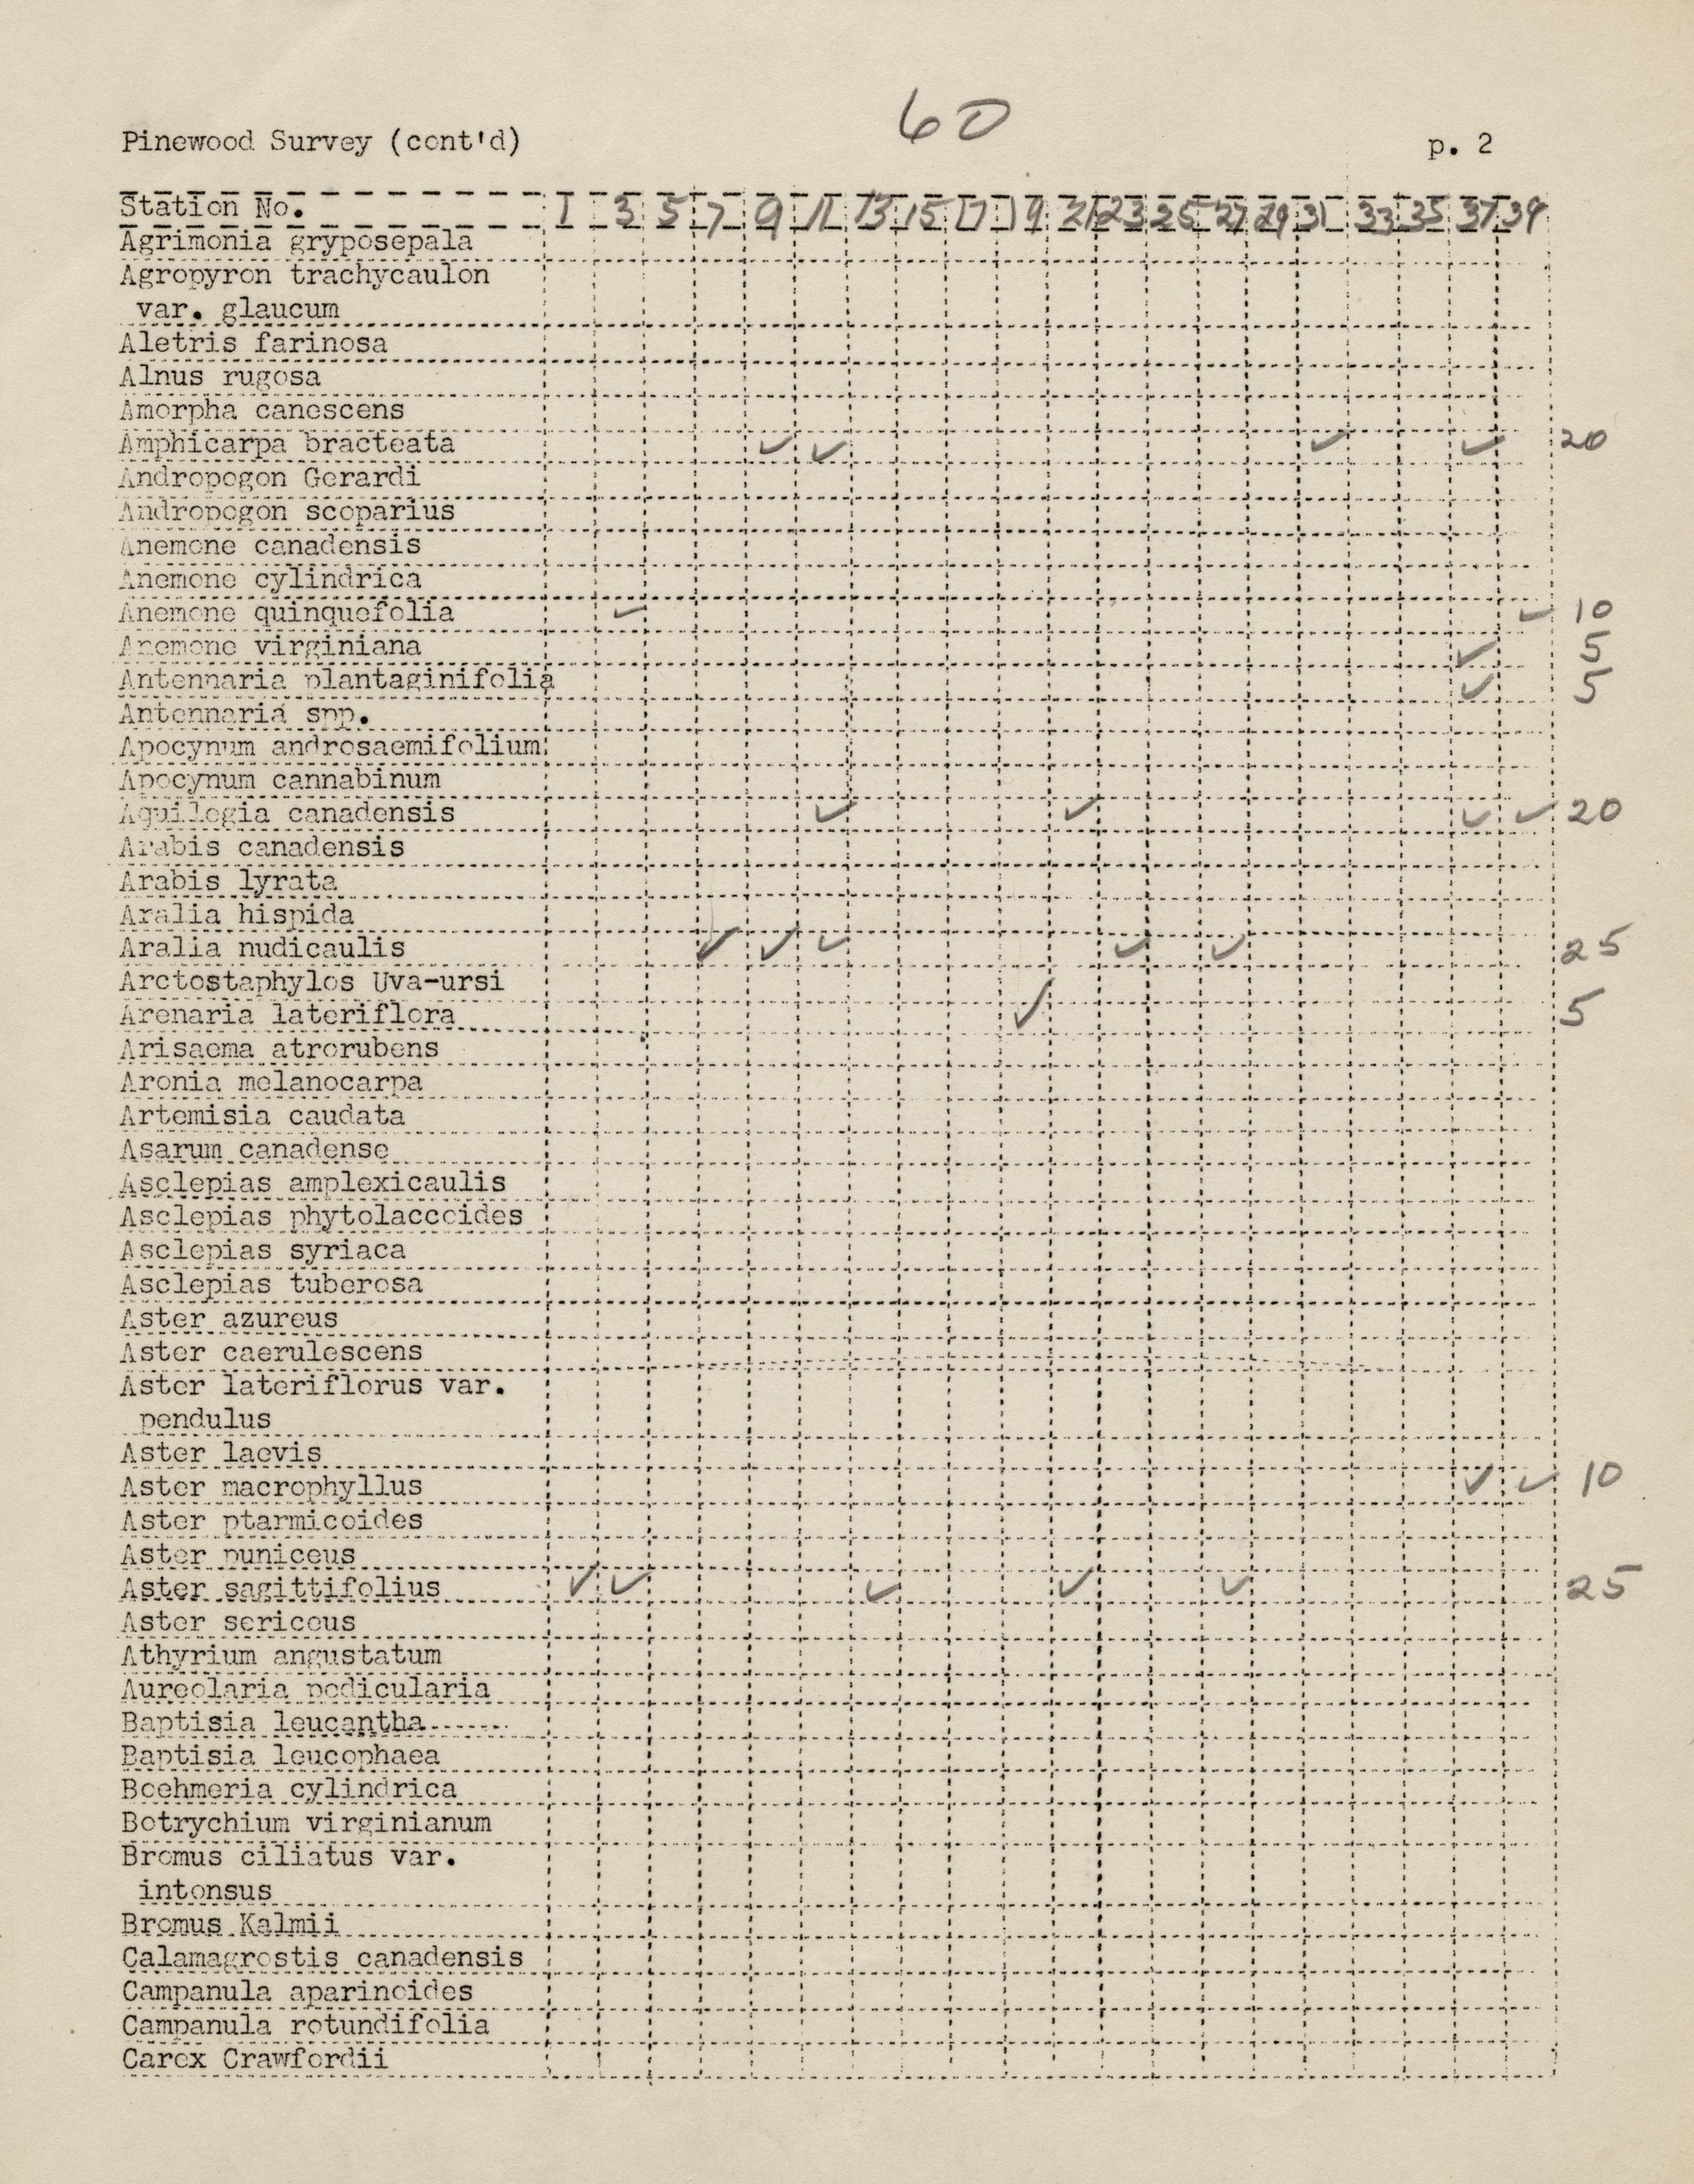 60
Pinewood Survey (cont'd) p. 2
Station No. 1 3 5 7 9 11 13 15 17 19 21 23 25 27 29 31 33 35 37 39
Agrimonia gryposepala
Agropyron trachycaulon
var. glaucum
Aletris farinosa
Alnus rugosa
Amorpha canescens
Amphicarpa bracteata ✓ ✓ ✓ ✓ 20
Andropogon Gerardi
Andropogon scoparius
Anemone canadensis
Anemone cylindrica
Anemone quinquefolia ✓ ✓ 10
Anemone virginiana ✓ 5
Antennaria plantaginifolia ✓ 5
Antennaria spp.
Apocynum androsaemifolium
Apocynum cannabinum
Aquilegia canadensis ✓ ✓ ✓ ✓ 20
Arabis canadensis
Arabis lyrata
Aralia hispida
Aralia nudicaulis ✓ ✓ ✓ ✓ ✓ 25
Arctostaphylos Uva-ursi
Arenaria lateriflora ✓ 5
Arisaema atrorubens
Aronia melanocarpa
Artemisia caudata
Asarum canadense
Asclepias amplexicaulis
Asclepias phytolaccoides
Asclepias syriaca
Asclepias tuberosa
Aster azureus
Aster caerulescens
Aster lateriflorus var.
pendulus
Aster laevis
Aster macrophyllus ✓ ✓ 10
Aster ptarmicoides
Aster puniceus
Aster sagittifolius ✓ ✓ ✓ ✓ ✓ 25
Aster sericeus
Athyrium angustatum
Aureolaria pedicularia
Baptisia leucantha
Baptisia leucophaea
Boehmeria cylindrica
Botrychium virginianum
Bromus ciliatus var.
intonsus
Bromus Kalmii
Calamagrostis canadensis
Campanula aparinoides
Campanula rotundifolia
Carex Crawfordii